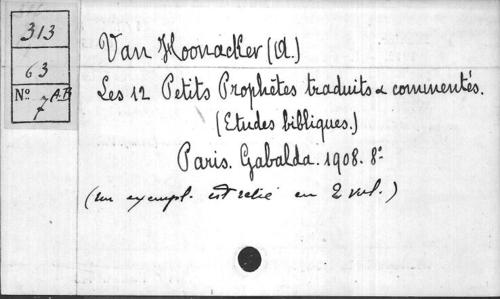 313
63
Nº 7 A.B
Van Hoonacker (A.)
Les 12 Petits Prophètes traduits & commentés.
(Etudes bibliques.)
Paris. Gabalda. 1908. 8º
(un exempl. est relié en 2 vol.)